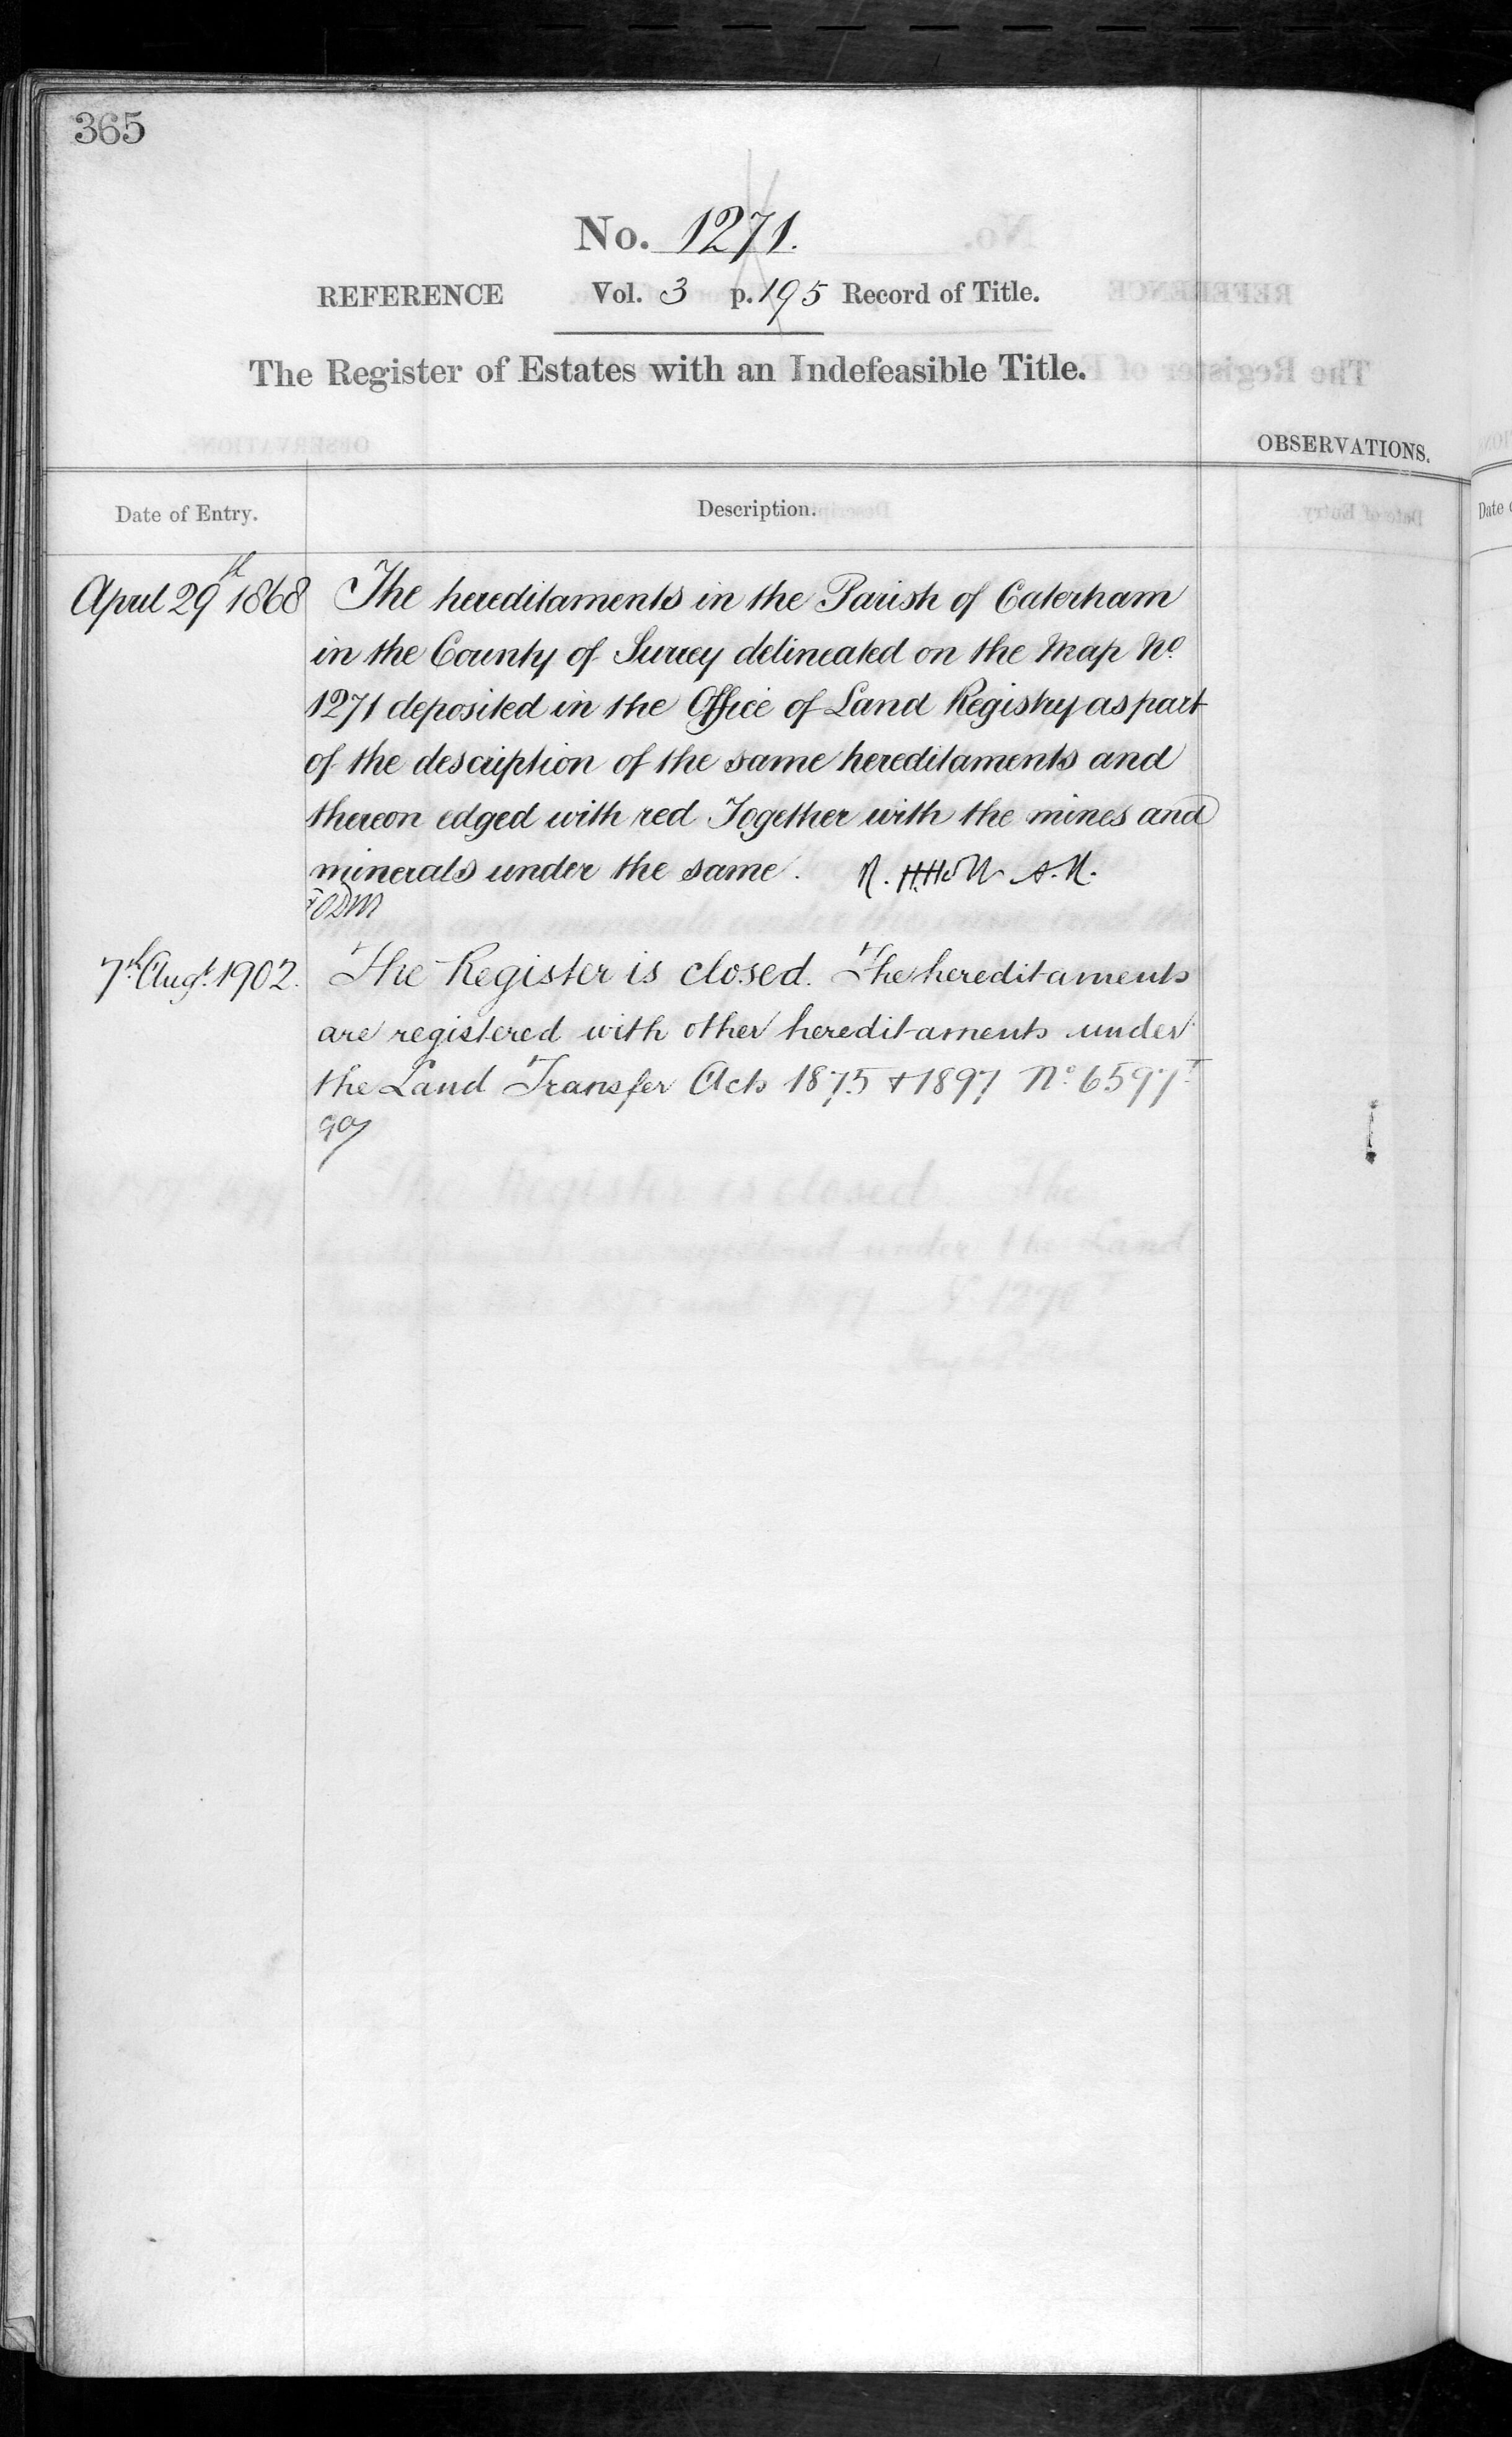 365
No. 1271.
REFERENCE Vol. 3 p. 195 Record of Title.
The Register of Estates with an Indefeasible Title.
OBSERVATIONS.
Date of Entry. Description.
April 29th 1868 The hereditaments in the Parish of Caterham
in the County of Surrey delineated on the Map No.
1271 deposited in the Office of Land Registry as part
of the description of the same hereditaments and
thereon edged with red Together with the mines and
minerals under the same. R. H. Holt A.R.
7th Augt. 1902. The Register is closed. The hereditaments
are registered with other hereditaments under
the Land Transfer Acts 1875 & 1897 No. 6597